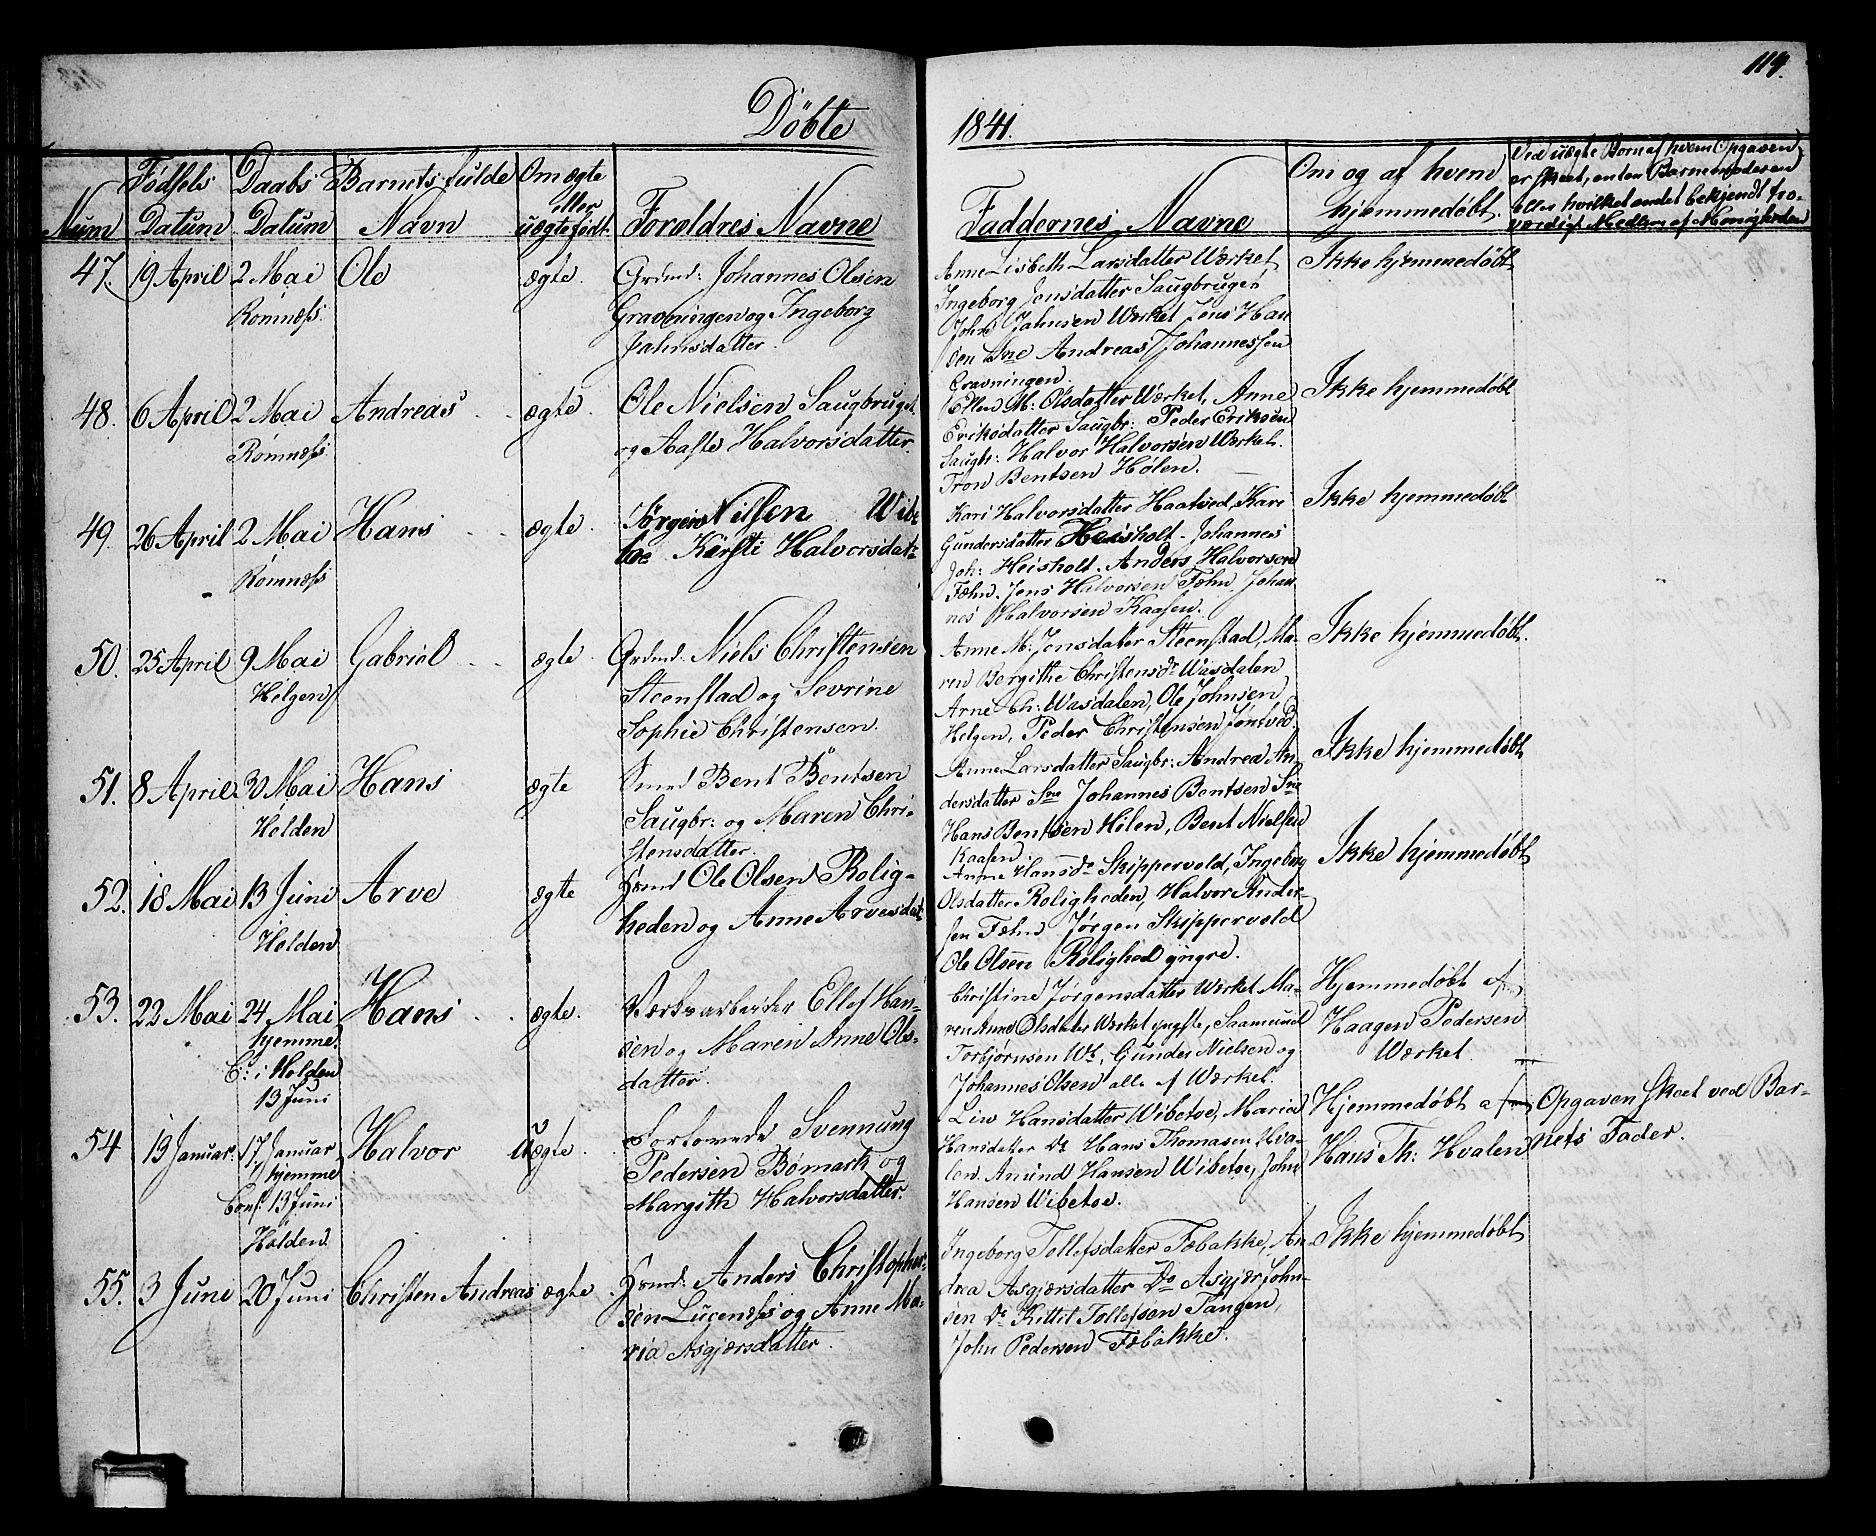 114.
Döbte 1841.
Num
Fødsels Datum
Daabs Datum
Barnets fulde Navn
Om ægte eller uægte født.
Forældres Navne
Faddernes Navne
Om og af hvem hjemmedøbt.
Ved uægte Børn af hvem Opgaven
er skeet, enten Barnemoderen
eller hvilket andet bekjendt tro-
værdigt Medlem af Menigheden
47. 19 April 2 Mai Ole ægte.
Rømnæss.
Grdmd: Johannes Olsen
Gravningen og Ingeborg
Jahnsdatter.
Anne Lisbeth Larsdatter Værket
Ingeborg Jensdatter Saugbruget
John Jahnsen Værket Jens Han
sen Sne Andreas Johannessen
Gravningen.
Ikke hjemmedøbt
48. 6 April 2 Mai Andreas ægte.
Rømnæss
Ole Nielsen Saugbruget
og Aaste Halvorsdatter.
Ellen M: Olsdatter Værket, Anne
Eriksdatter Saugbr: Peder Eriksen
Saugbr: Halvor Halvorsen Værket.
Tron Bentsen Hølen.
Ikke hjemmedøbt
49. 26 April 2 Mai Hans ægte.
Rømnæss
Jørgen Nilsen Wibe
toe Kirsti Halvorsdat:
Kari Halvorsdatter Haatved, Kari
Gundersdatter Heisholt. Johannes
Joh: Heisholt. Anders Halvorsen
Fæhn. Jens Halvorsen Fæhn. Johan
nes Halvorsen Kaasen.
Ikke hjemmedøbt
50. 25 April 9 Mai Gabriel ægte.
Helgen
Grdmd: Niels Christensen
Steenstad og Sevrine
Sophie Christensen.
Anne M: Jensdatter Steenstad, Ma-
ren Bergithe Christensdr Wasdalen
Arne Ch: Wasdalen, Ole Johnsen
Helgen, Peder Christensen Tøntved.
Ikke hjemmedøbt.
51. 8 April 30 Mai Hans ægte
Holden
Bent Bentsen
Saugbr: og Maren Chri-
stensdatter.
Anne Larsdatter Saugbr: Andrea An-
dersdatter Sne Johannes Bentsen Sne
Hans Bentsen Hølen, Bent Nielsen
Kaasen.
Ikke hjemmedøbt
52. 18 Mai 13 Juni Arve ægte
Holden
Ole Olsen Rolig-
heden og Anne Arvesdat
Anne Hansdr Skippervold, Ingeborg
Olsdatter Roligheden, Halvor Ander-
sen Fæhn Jørgen Skippervold
Ole Olsen Rolighed yngre.
Ikke hjemmedøbt
53. 22 Mai 24 Mai Hans ægte.
hjemme.
C: i Holden
13 Juni
Værksarbeider Ellef Han-
sen og Maren Anne Ols-
datter.
Christine Jørgensdatter Værket Ma-
ren Anne Olsdatter Værket yngste, Saamund
Torbjørnsen Wt, Gunder Nielsen og
Johannes Olsen alle af Værket.
Hjemmedøbt af
Haagen Pedersen
Værket.
54 13 Januar. 17 Januar Halvor uægte.
hjemme
Conf: 13 Juni
Holden.
Forlovede Svennung
Pedersen Bømark og
Margith Halvorsdatter.
Liv Hansdatter Wibetoe, Maria
Hansdatter Do Hans Thomasen Hva-
len. Amund Hansen Wibetoe, John
Hansen Wibetoe.
Hjemmedøbt af
Hans Th: Hvalen
Opgaven skeet ved Bar-
nets Fader.
55. 3 Juni 20 Juni Christen Andreas ægte.
Grdmd: Anders Christopher-
sen Lucenæss og Anne Ma-
ria Asgjærsdatter.
Ingeborg Tollefsdatter Fæbakke, An-
drea Asgjærsdatter Do Asgjær John-
sen Do Kittil Tollefsen Tangen,
John Pedersen Fæbakke.
Ikke hjemmedøbt